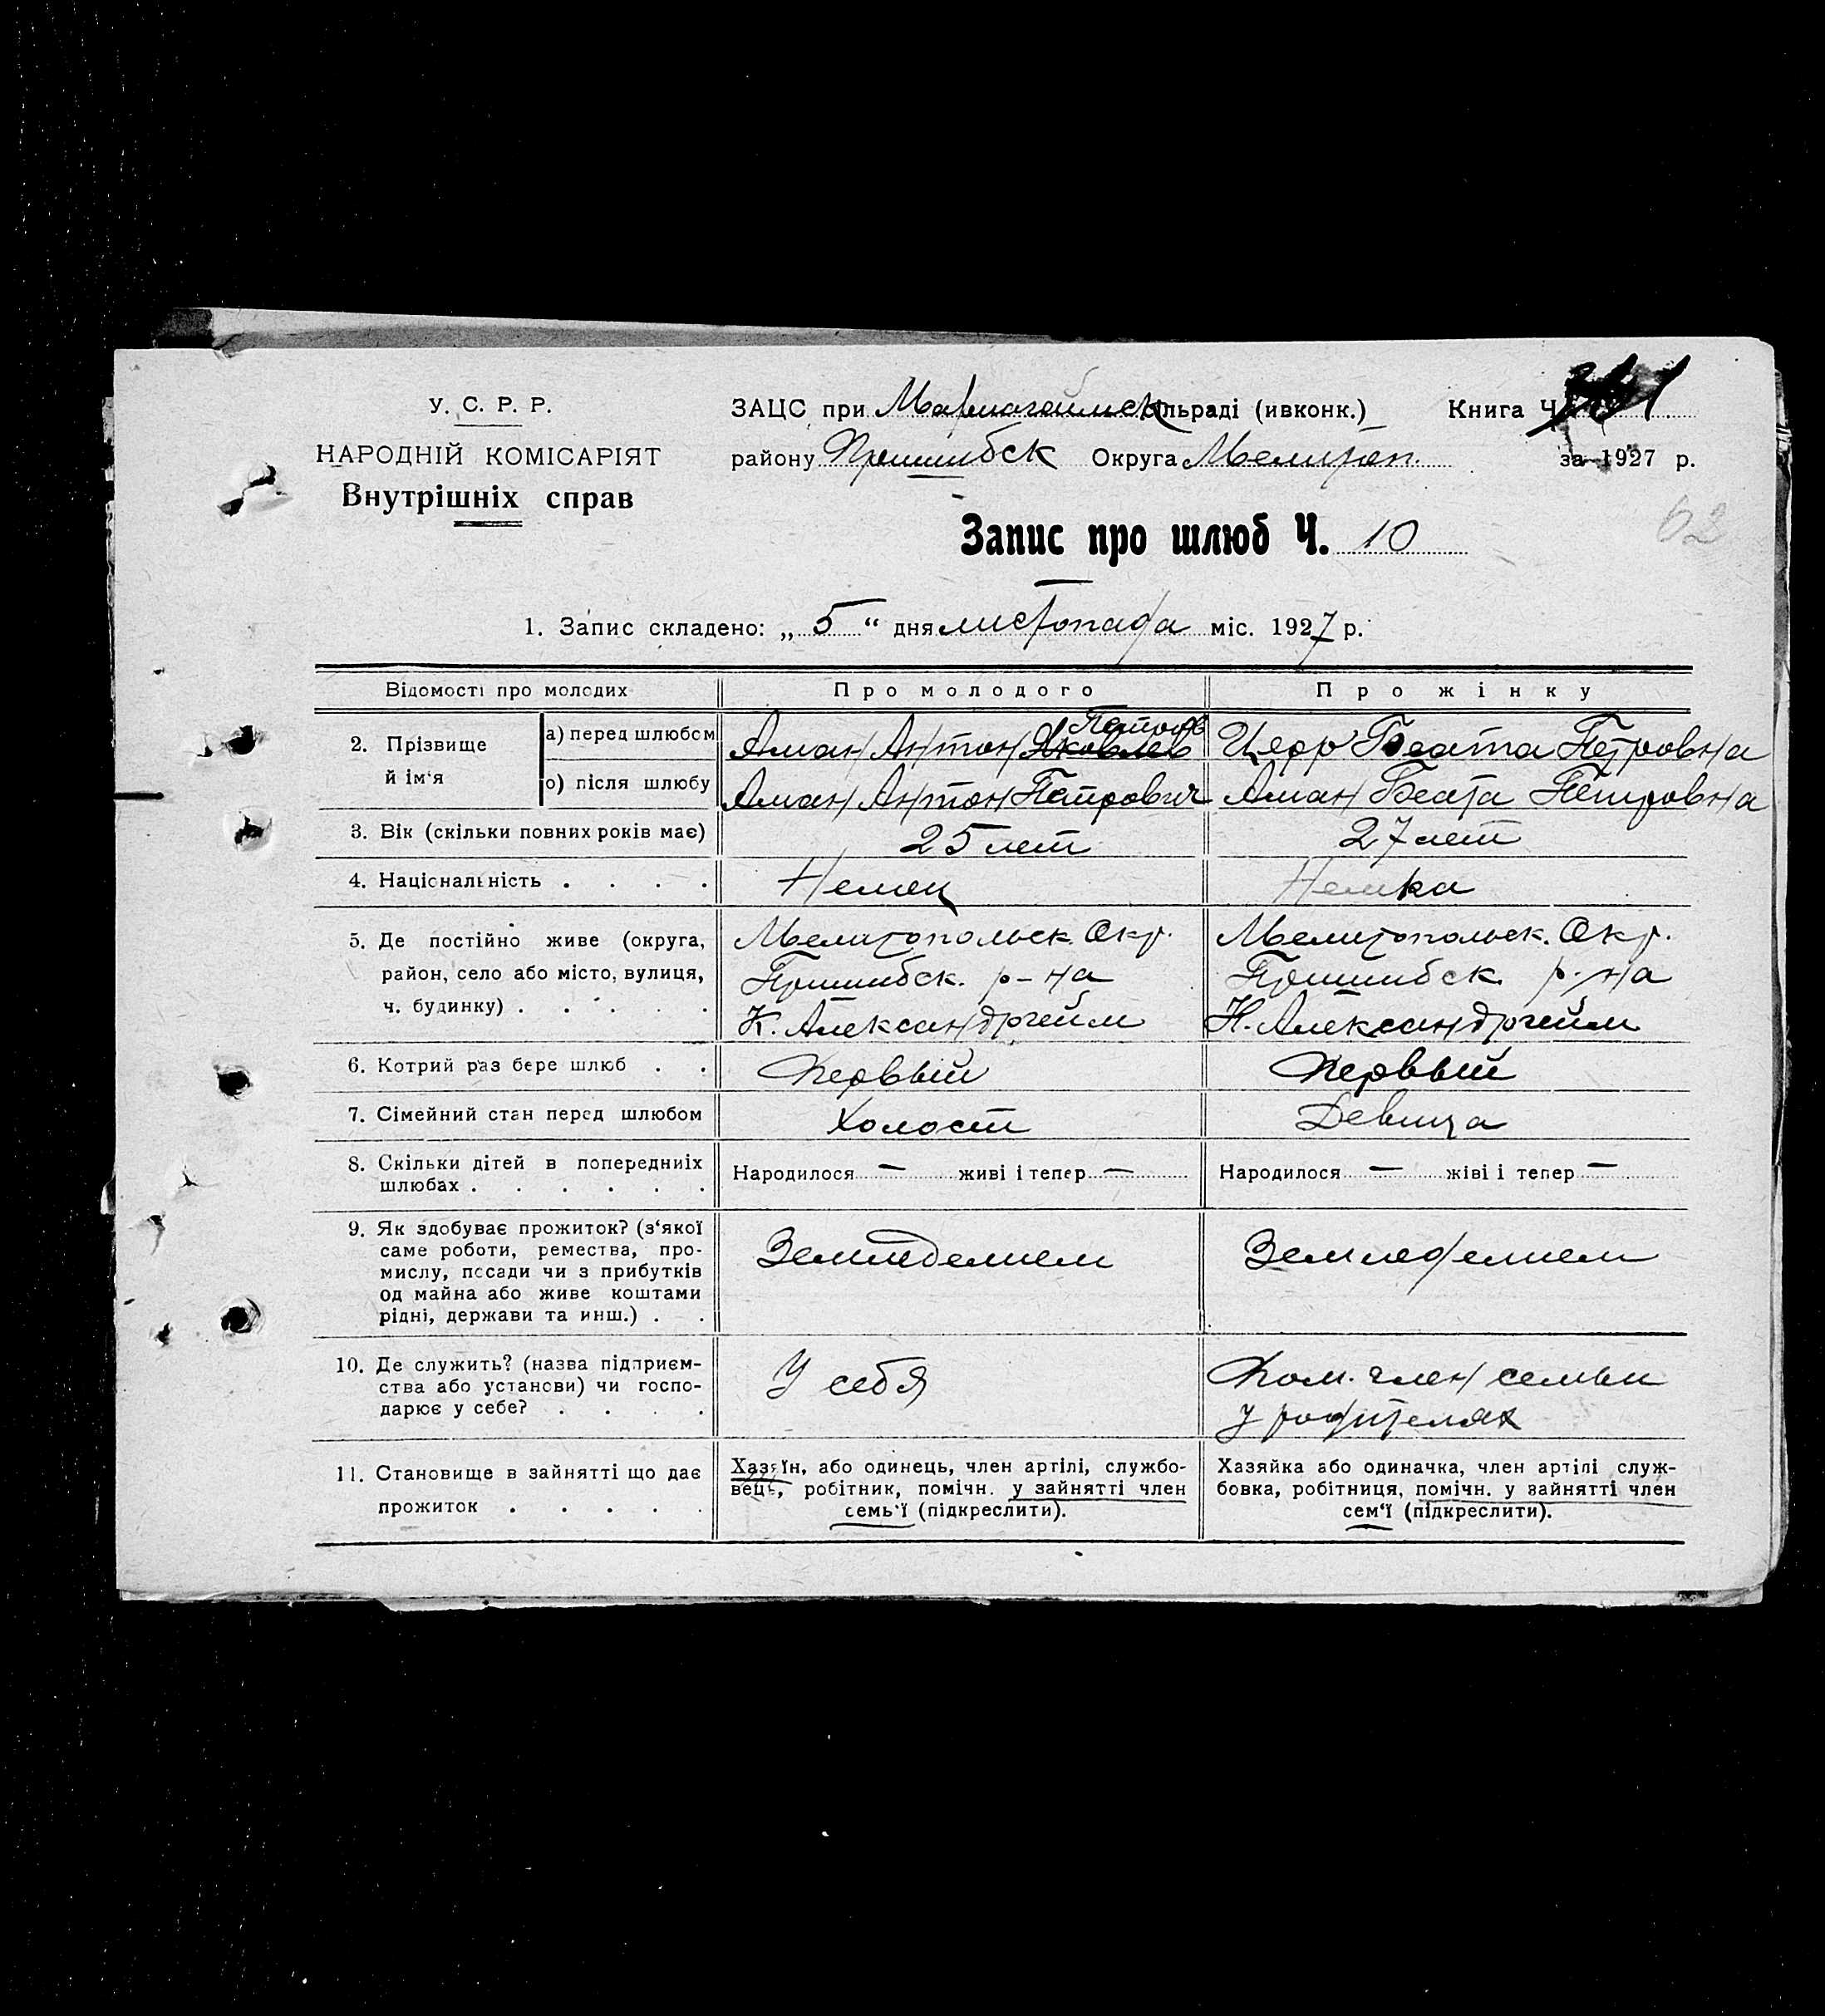 У. С. Р. Р.
НАРОДНІЙ КОМІСАРІЯТ
Внутрішніх справ
ЗАЦС при сільраді (ивконк.) Книга Ч
району Пришибск Округа Мелитоп. за 1927 р.
62
Запис про шлюб Ч. 10
1. Запис складено: „ 5 “ дня листопада міс. 1927 р.
Відомості про молодих
Про молодого
Про жінку
2. Прізвище й ім‘я
а) перед шлюбом
Аман Антон Яковлев Петров
Цефр Беата Петровна
о) після шлюбу
Аман Антон Петрович
Аман Беата Петровна
3. Вік (скільки повних років має)
25 лет
27 лет
4. Національність . . . .
Немец
Немка
5. Де постійно живе (округа,
район, село або місто, вулиця,
ч. будинку) . . . . .
Мелитопольск. Окр.
Пришибск. р-на
К. Александргейм
Мелитопольск. Окр.
Пришибск. р-на
Н. Александргейм
6. Котрий раз бере шлюб . .
Первый
Первый
7. Сімейний стан перед шлюбом
Холост
Девица
8. Скільки дітей в попередниіх
шлюбах . . . . . .
Народилося — живі і тепер —
Народилося — жіві і тепер —
9. Як здобуває прожиток? (з‘якої
саме роботи, ремества, про-
мислу, посади чи з прибутків
од майна або живе коштами
рідні, держави та инш.) . .
Земледелием
Земледелием
10. Де служить? (назва підприєм-
ства або установи) чи госпо-
дарює у себе? . . . .
У себя
Пом. член семьи
у родителях
11. Становище в зайнятті що дає
прожиток . . . . .
Хазяїн, або одинець, член артілі, службо-
вець, робітник, помічн. у зайнятті член
семь‘ї (підкреслити).
Хазяйка або одиначка, член артілі служ-
бовка, робітниця, помічн. у зайнятті член
сем‘ї (підкреслити).